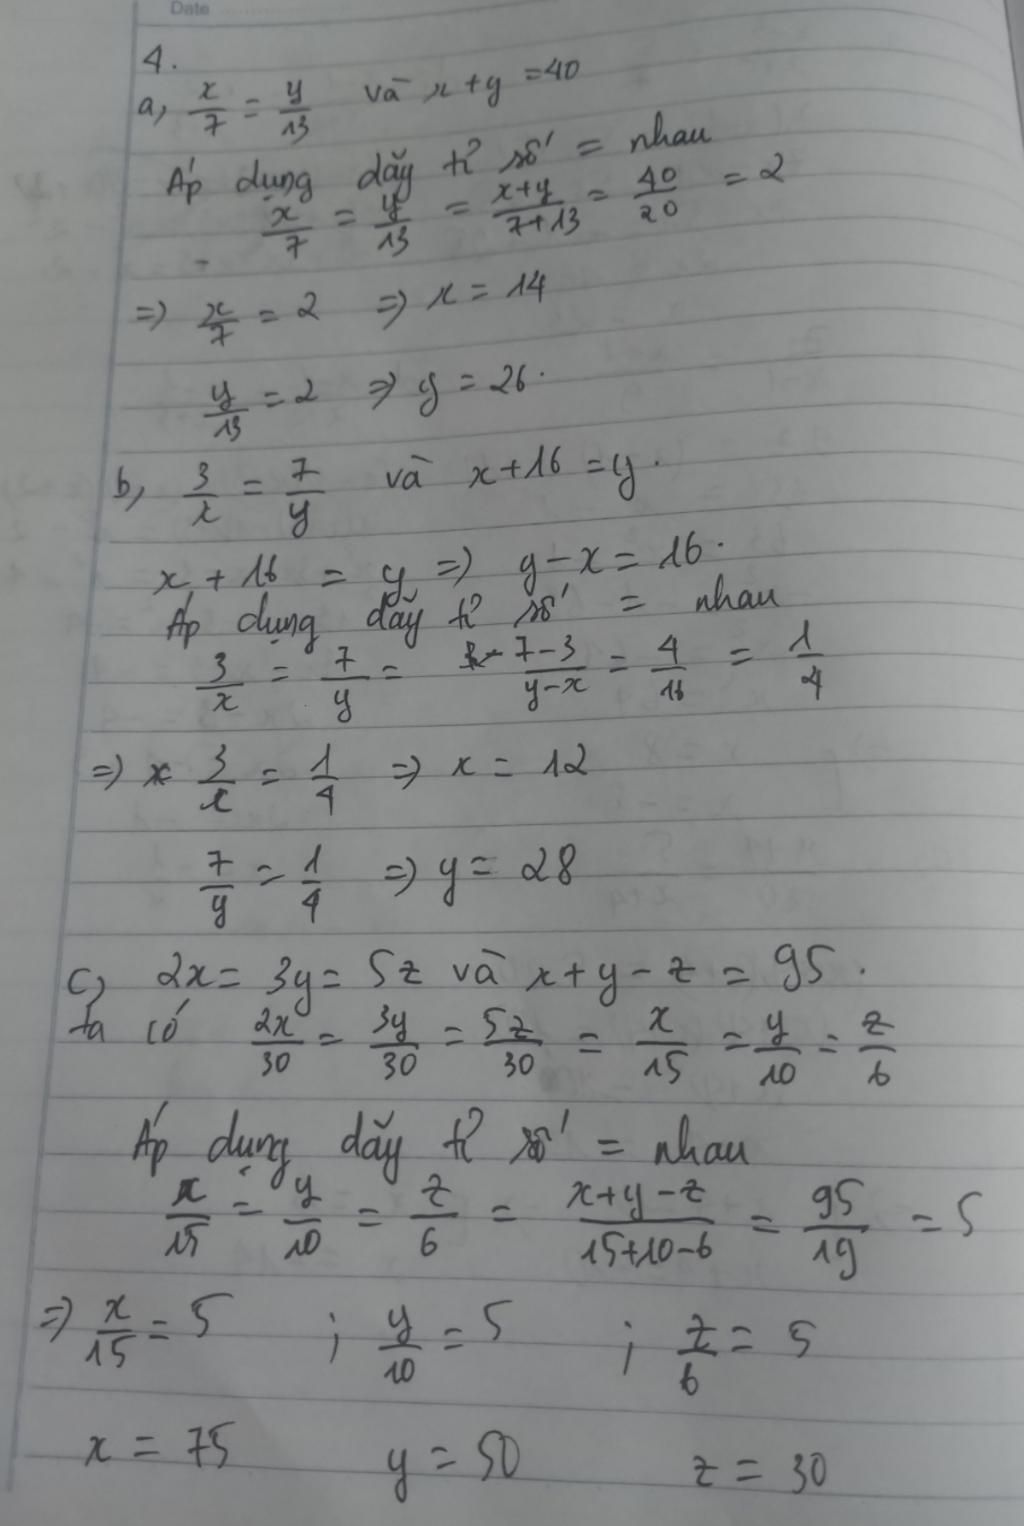 Date
4.
a, x/7 = y/13 và x+y = 40
Áp dụng dãy tỉ số = nhau
x/7 = y/13 = x+y/7+13 = 40/20 = 2
=> x/7 = 2 => x = 14
y/13 = 2 => y = 26.
b, 3/x = 7/y và x+16 = y.
x + 16 = y => y-x = 16.
Áp dụng dãy tỉ số = nhau
3/x = 7/y = 7-3/y-x = 4/16 = 1/4
=> 3/x = 1/4 => x = 12
7/y = 1/4 => y = 28
c, 2x = 3y = 5z và x+y-z = 95.
ta có 2x/30 = 3y/30 = 5z/30 = x/15 = y/10 = z/6
Áp dụng dãy tỉ số = nhau
x/15 = y/10 = z/6 = x+y-z/15+10-6 = 95/19 = 5
=> x/15 = 5 ; y/10 = 5 ; z/6 = 5
x = 75 y = 50 z = 30